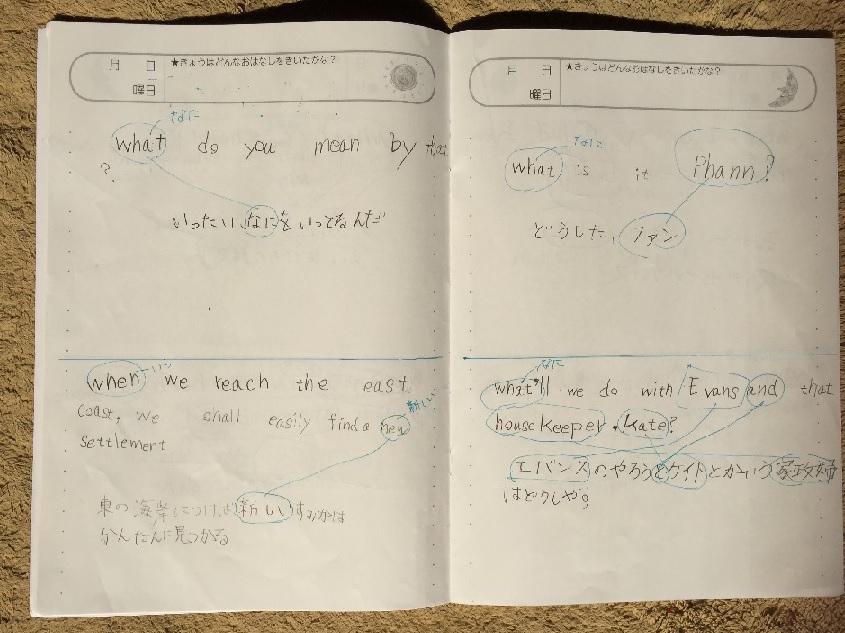 月 日
曜日
★きょうはどんなおはなしをきいたかな？
なに
what do you mean by that
?
いったい、なにをいってるんだ
when いつ we reach the east
新しい
coast, we shall easily find a new
settlement
東の海岸につけば新しいすみかは
かんたんに見つかる
月 日
曜日
★きょうはどんなおはなしをきいたかな？
なに
what is it Phann?
どうした、ファン
なに
what'll we do with Evans and that
housekeeper, Kate?
エバンスのやろうとケイトとかいう家政婦
はどうしやす